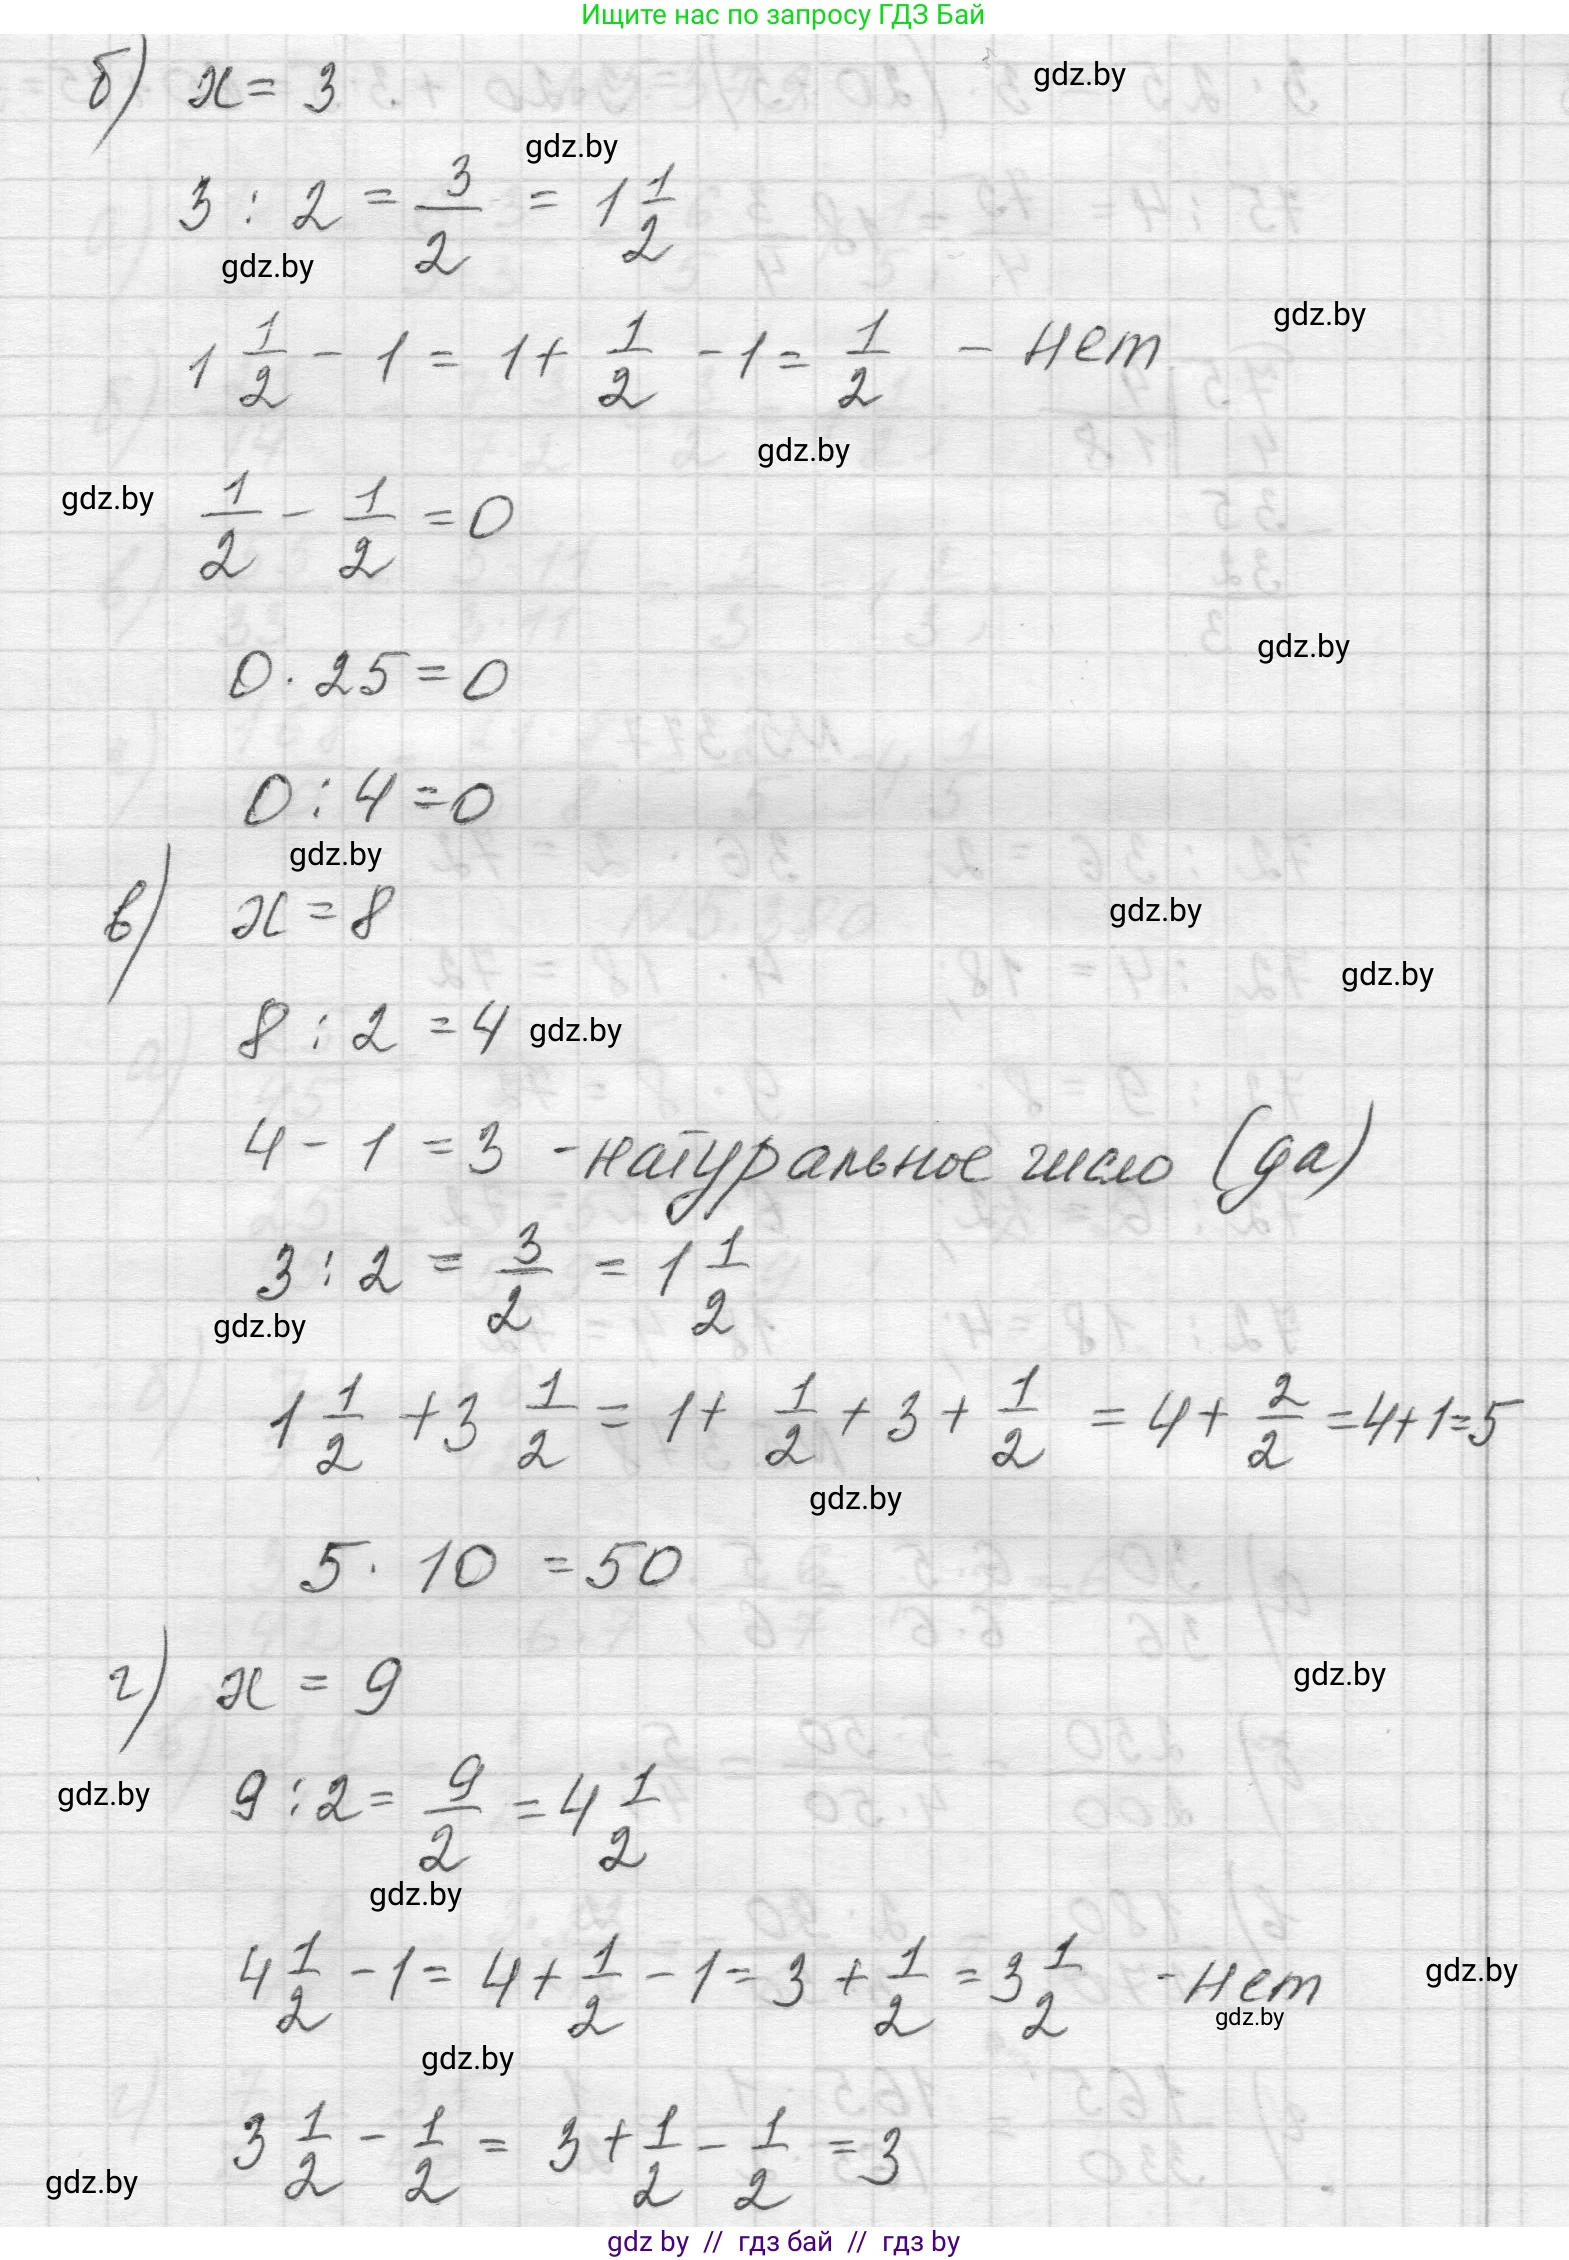 Ищите нас по запросу ГДЗ Бай
б) x = 3
gdz.by
gdz.by
3 : 2 = 3/2 = 1 1/2
gdz.by
gdz.by
1 1/2 - 1 = 1 + 1/2 - 1 = 1/2 - нет
gdz.by
gdz.by
1/2 - 1/2 = 0
gdz.by
0 · 25 = 0
0 : 4 = 0
gdz.by
в) x = 8
gdz.by
gdz.by
8 : 2 = 4
gdz.by
4 - 1 = 3 - натуральное число (да)
3 : 2 = 3/2 = 1 1/2
gdz.by
1 1/2 + 3 1/2 = 1 + 1/2 + 3 + 1/2 = 4 + 2/2 = 4 + 1 = 5
gdz.by
5 · 10 = 50
г) x = 9
gdz.by
gdz.by
9 : 2 = 9/2 = 4 1/2
gdz.by
4 1/2 - 1 = 4 + 1/2 - 1 = 3 + 1/2 = 3 1/2 - нет
gdz.by
gdz.by
gdz.by
3 1/2 - 1/2 = 3 + 1/2 - 1/2 = 3
gdz.by
gdz by // гдз бай // гдз by